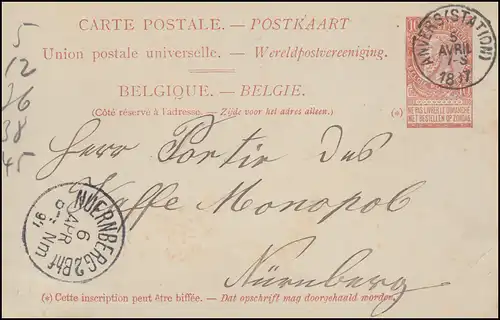 CARTE POSTALE. — POSTKAART
Union postale universelle. — Wereldpostvereeniging.
BELGIQUE. — BELGIE.
(Côté réservé à l'adresse. — Zijde voor het adres alleen.)
(*)
NE PAS LIVRER LE DIMANCHE
NIET BESTELLEN OP ZONDAG
ANVERS (STATION)
5
AVRIL
7-S
5
12
26
38
45
Herr Portier des
Kaffe Monopol
Nürnberg
NUERNBERG 2 Bhf
6
APR
Nm
(*) Cette inscription peut être biffée. — Dat opschrift mag doorgehaald worden.